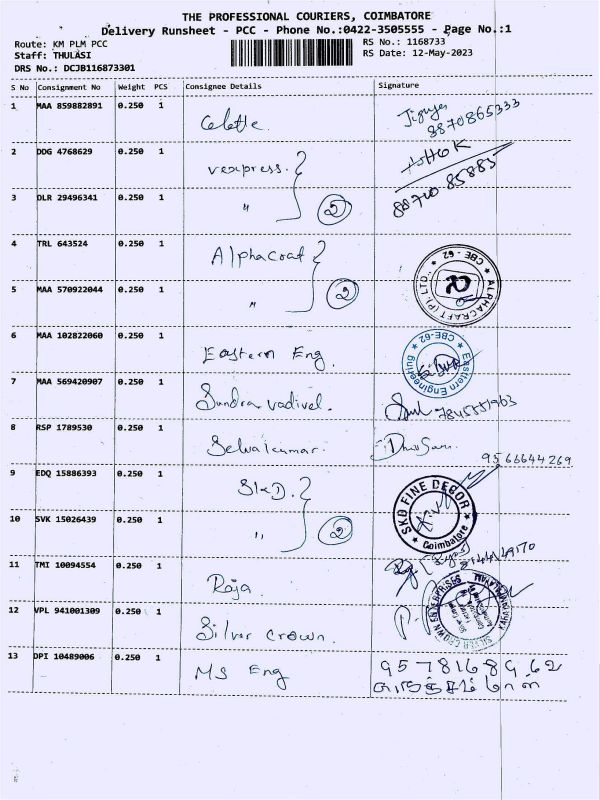 THE PROFESSIONAL COURIERS, COIMBATORE
Delivery Runsheet - PCC - Phone No.:0422-3505555 - Page No.:1
Route: KM PLM PCC
Staff: THULASI
DRS No.: DCJB116873301
RS No.: 1168733
RS Date: 12-May-2023
S No Consignment No Weight PCS Consignee Details Signature
1 MAA 859882891 0.250 1 Celette. 8870865333
2 DDG 4768629 0.250 1 vexpress. ASHOK
3 DLR 29496341 0.250 1 " 2 88700 85885
4 TRL 643524 0.250 1 Alphacraft ALPHACRAFT (P) LTD., ★ CBE - 62 ★
5 MAA 570922044 0.250 1 " 2
6 MAA 102822060 0.250 1 Eastern Eng. Eastern Engineering ★ CBE-62 ★
7 MAA 569420907 0.250 1 Sundra vadivel.
8 RSP 1789530 0.250 1 Selvakumar. 9566644269
9 EDQ 15886393 0.250 1 SKD. SKD FINE DECOR
10 SVK 15026439 0.250 1 " 2 ★ Coimbatore ★
11 TMI 10094554 0.250 1 Raja.
12 VPL 941001309 0.250 1 Silver Crown. SILVER CROWN ENTERPRISES
13 DPI 10489006 0.250 1 MS Eng 9578168962